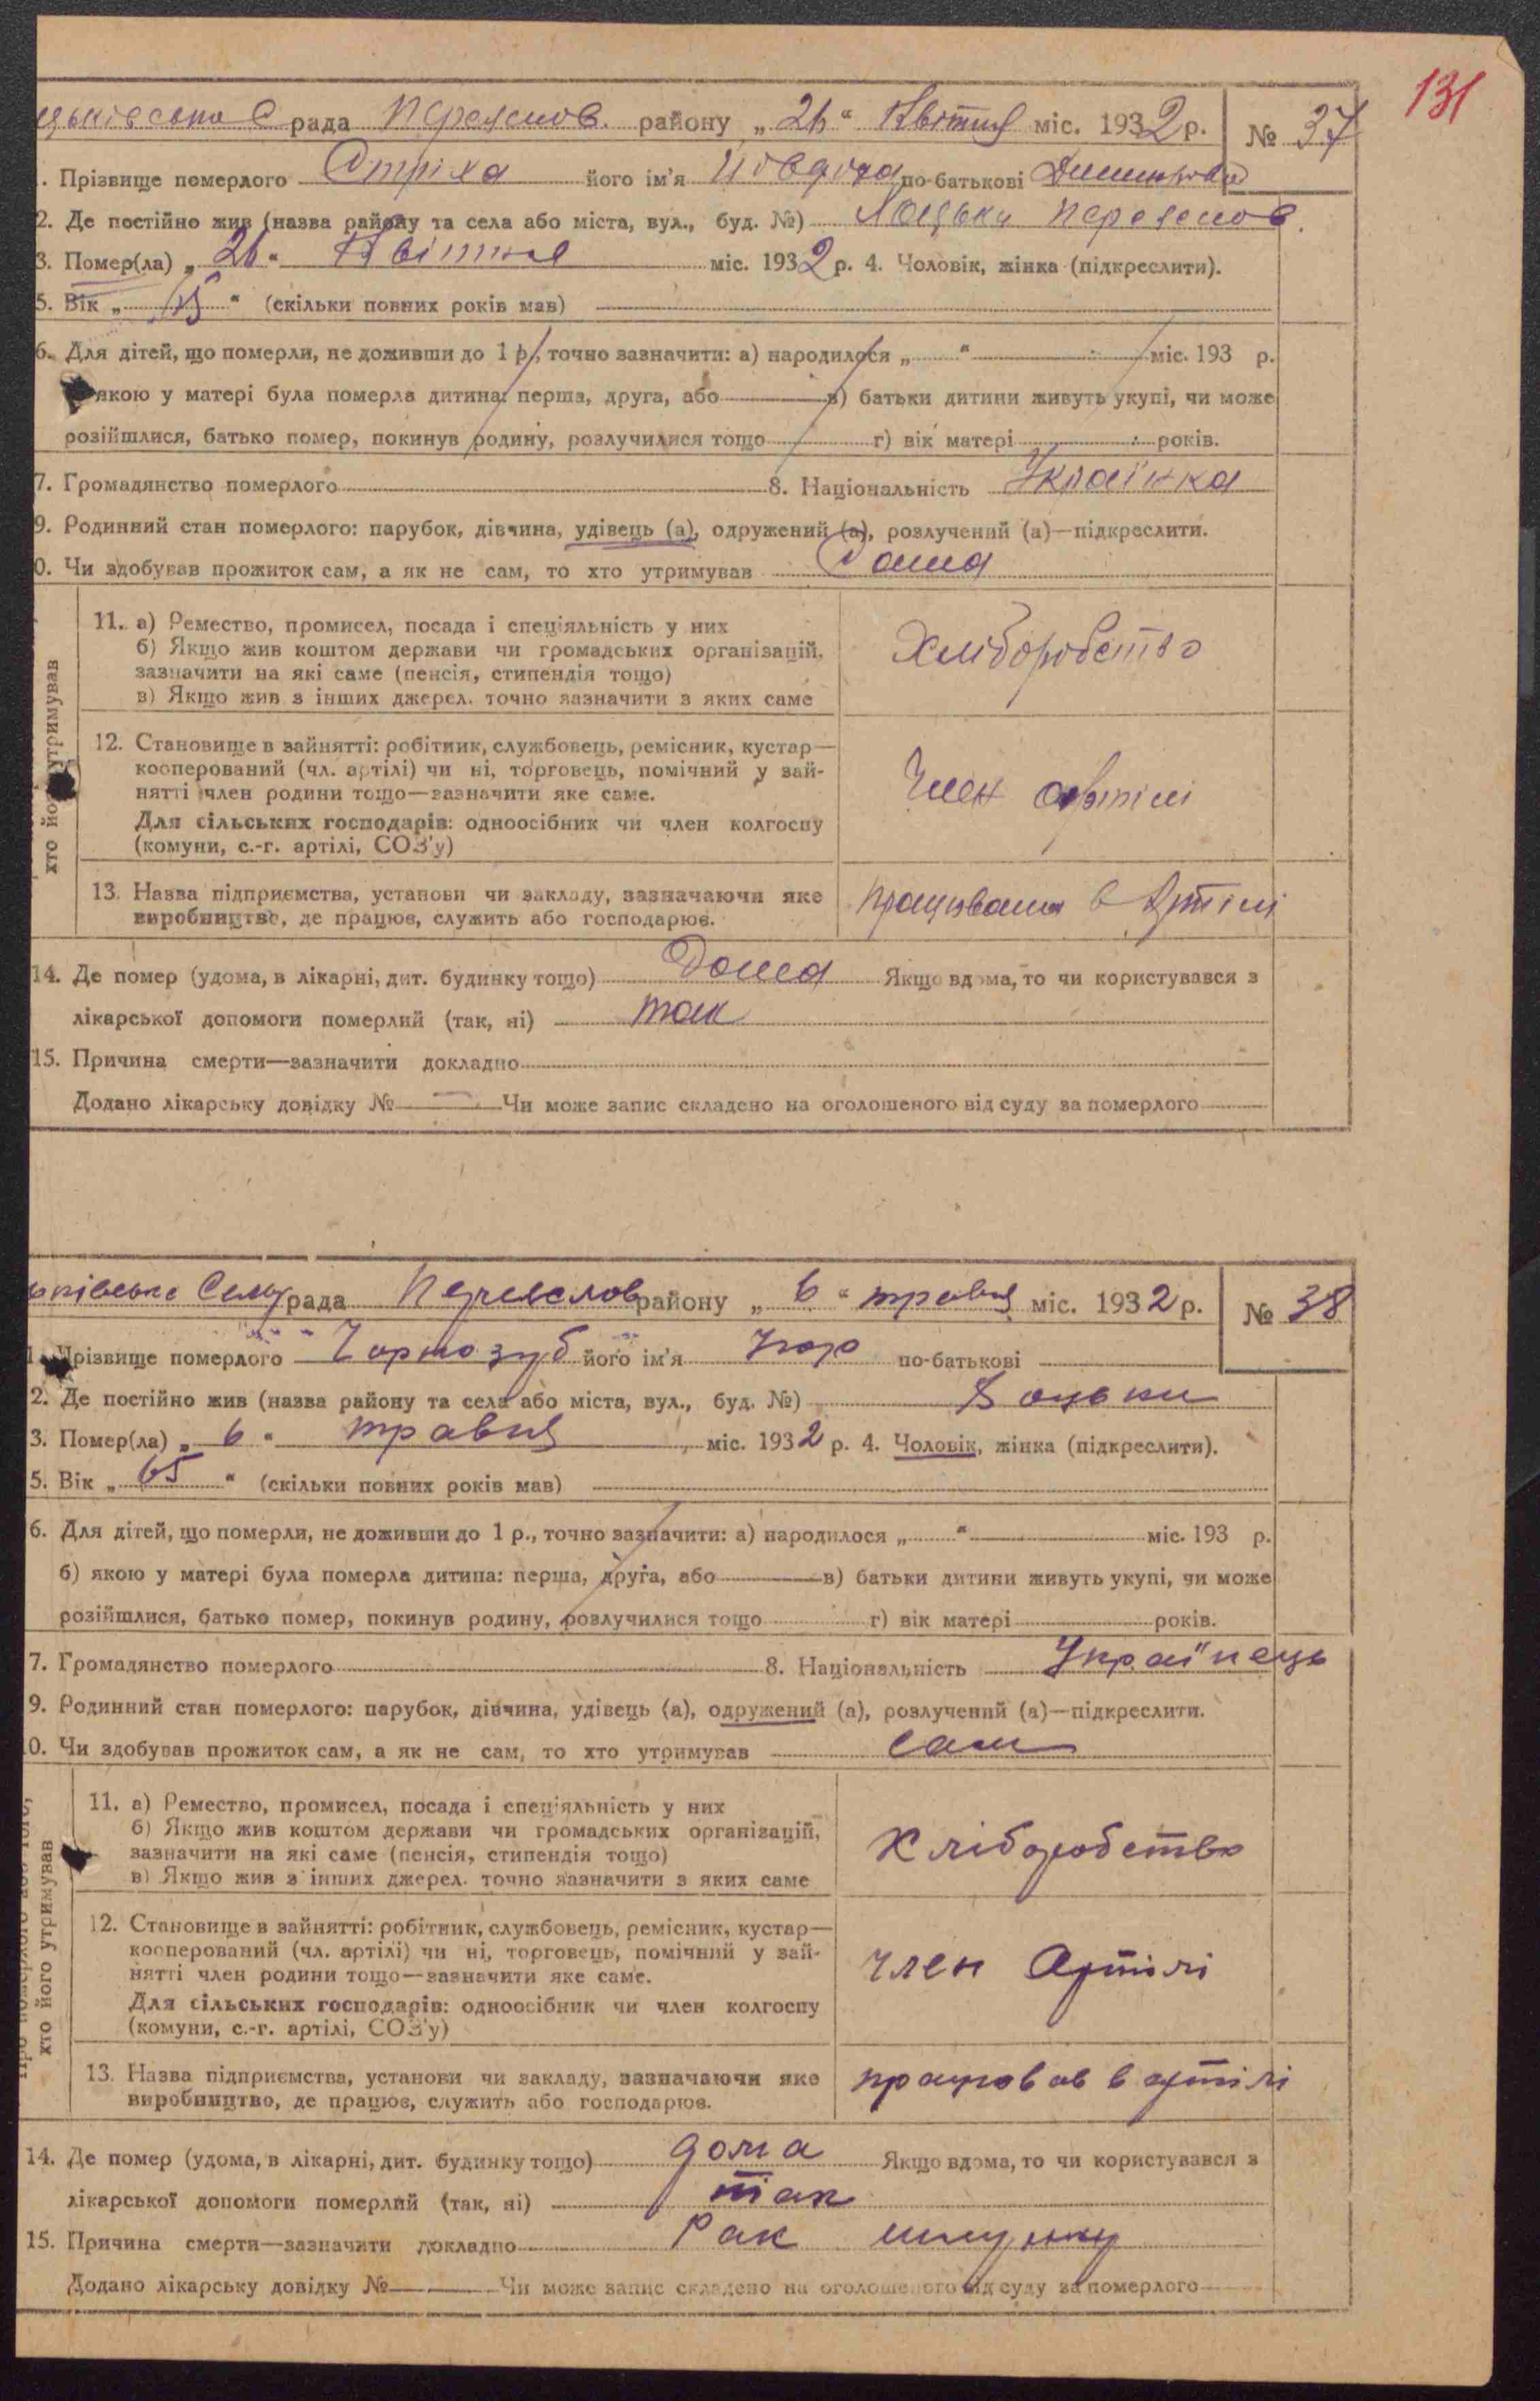 131
рада Переяслов. району „ 26 “ Квітня міс. 1932 р. № 37
1. Прізвище померлого Стріха його ім'я Йовдоха по-батькові
2. Де постійно жив (назва району та села або міста, вул., буд. №) Лецьки Переяслов.
3. Помер(ла) „ 26 “ Квітня міс. 1932 р. 4. Чоловік, жінка (підкреслити).
5. Вік „ “ (скільки повних років мав)
6. Для дітей, що померли, не доживши до 1 р., точно зазначити: а) народилося „ “ міс. 193 р.
якою у матері була померла дитина: перша, друга, або в) батьки дитини живуть укупі, чи може
розійшлися, батько помер, покинув родину, розлучилися тощо г) вік матері років.
7. Громадянство померлого 8. Національність Українка
9. Родинний стан померлого: парубок, дівчина, удівець (а), одружений (а), розлучений (а)—підкреслити.
0. Чи здобував прожиток сам, а як не сам, то хто утримував Сама
хто його утримував
11. а) Ремество, промисел, посада і спеціяльність у них
б) Якщо жив коштом держави чи громадських організацій,
зазначити на які саме (пенсія, стипендія тощо)
в) Якщо жив з інших джерел. точно зазначити з яких саме
Хліборобство
12. Становище в зайнятті: робітник, службовець, ремісник, кустар—
кооперований (чл. артілі) чи ні, торговець, помічний у зай-
нятті член родини тощо—зазначити яке саме.
Для сільських господарів: одноосібник чи член колгоспу
(комуни, с.-г. артілі, СОЗ'у)
Член артілі
13. Назва підприємства, установи чи закладу, зазначаючи яке
виробництво, де працює, служить або господарює.
працювала в Артілі
14. Де помер (удома, в лікарні, дит. будинку тощо) Дома Якщо вдома, то чи користувався з
лікарської допомоги померлий (так, ні) так
15. Причина смерти—зазначити докладно
Додано лікарську довідку № — Чи може запис складено на оголошеного від суду за померлого
рада Переяслов району „ 6 “ травня міс. 1932 р. № 38
1. Прізвище померлого Чорнозуб його ім'я по-батькові
2. Де постійно жив (назва району та села або міста, вул., буд. №)
3. Помер(ла) „ 6 “ травня міс. 1932 р. 4. Чоловік, жінка (підкреслити).
5. Вік „ 65 “ (скільки повних років мав)
6. Для дітей, що померли, не доживши до 1 р., точно зазначити: а) народилося „ “ міс. 193 р.
б) якою у матері була померла дитина: перша, друга, або в) батьки дитини живуть укупі, чи може
розійшлися, батько помер, покинув родину, розлучилися тощо г) вік матері років.
7. Громадянство померлого 8. Національність Українець
9. Родинний стан померлого: парубок, дівчина, удівець (а), одружений (а), розлучений (а)—підкреслити.
0. Чи здобував прожиток сам, а як не сам, то хто утримував сам
хто його утримував
11. а) Ремество, промисел, посада і спеціяльність у них
б) Якщо жив коштом держави чи громадських організацій,
зазначити на які саме (пенсія, стипендія тощо)
в) Якщо жив з інших джерел. точно зазначити з яких саме
Хліборобство
12. Становище в зайнятті: робітник, службовець, ремісник, кустар—
кооперований (чл. артілі) чи ні, торговець, помічний у зай-
нятті член родини тощо—зазначити яке саме.
Для сільських господарів: одноосібник чи член колгоспу
(комуни, с.-г. артілі, СОЗ'у)
член Артілі
13. Назва підприємства, установи чи закладу, зазначаючи яке
виробництво, де працює, служить або господарює.
працював в артілі
14. Де помер (удома, в лікарні, дит. будинку тощо) дома Якщо вдома, то чи користувався з
лікарської допомоги померлий (так, ні) так
15. Причина смерти—зазначити докладно Рак шлунку
Додано лікарську довідку № Чи може запис складено на оголошеного від суду за померлого